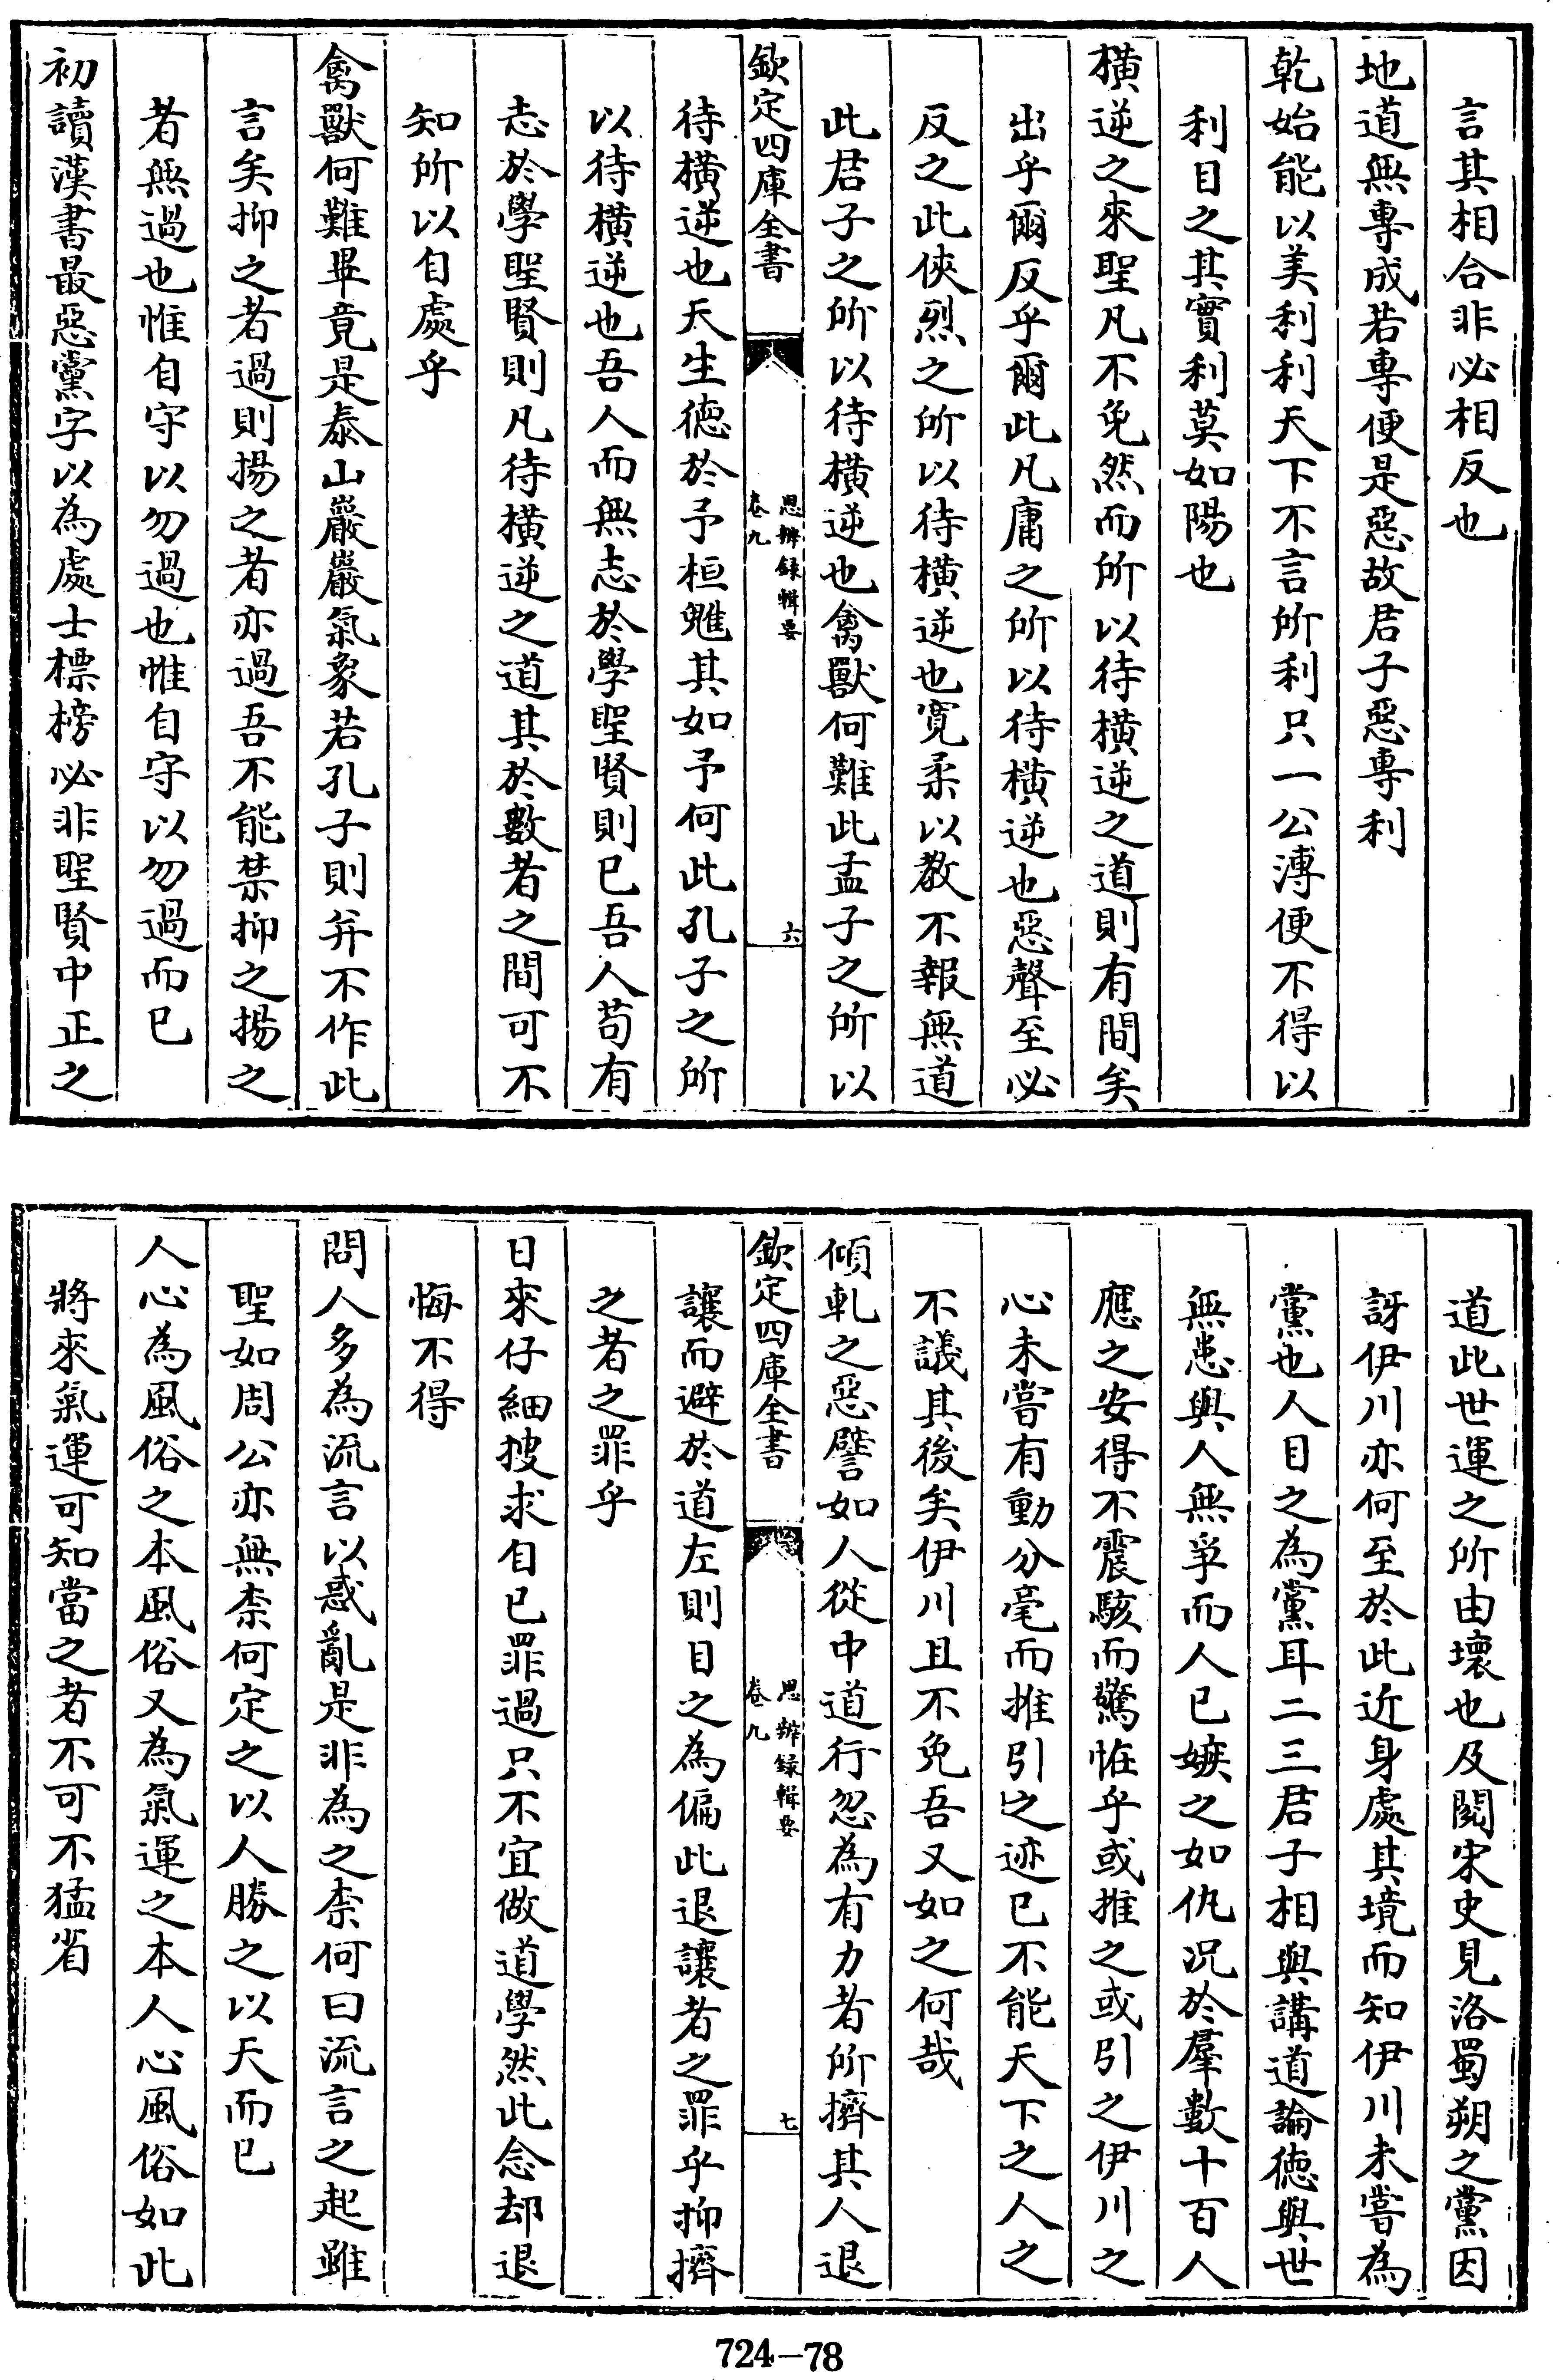 言其相合非必相反也
地道無專成若專便是惡故君子惡專利
乾始能以美利利天下不言所利只一公溥便不得以
利目之其實利莫如陽也
橫逆之來聖凡不免然而所以待橫逆之道則有間矣
出乎爾反乎爾此凡庸之所以待橫逆也惡聲至必
反之此俠烈之所以待橫逆也寛柔以教不報無道
此君子之所以待橫逆也禽獸何難此孟子之所以
欽定四庫全書
思辨録輯要
卷九
六
待橫逆也天生德於予桓魋其如予何此孔子之所
以待橫逆也吾人而無志於學聖賢則已吾人苟有
志於學聖賢則凡待橫逆之道其於數者之間可不
知所以自處乎
禽獸何難畢竟是泰山巖巖氣象若孔子則并不作此
言矣抑之者過則揚之者亦過吾不能禁抑之揚之
者無過也惟自守以勿過也惟自守以勿過而已
初讀漢書最惡黨字以為處士標榜必非聖賢中正之
道此世運之所由壞也及閱宋史見洛蜀朔之黨因
訝伊川亦何至於此近身處其境而知伊川未嘗為
黨也人目之為黨耳二三君子相與講道論德與世
無患與人無爭而人已嫉之如仇况於羣數十百人
應之安得不震駭而驚怪乎或推之或引之伊川之
心未嘗有動分毫而推引之迹已不能天下之人之
不議其後矣伊川且不免吾又如之何哉
傾軋之惡譬如人從中道行忽為有力者所擠其人退
欽定四庫全書
思辨録輯要
卷九
七
讓而避於道左則目之為偏此退讓者之罪乎抑擠
之者之罪乎
日來仔細搜求自已罪過只不宜做道學然此念却退
悔不得
問人多為流言以惑亂是非為之柰何曰流言之起雖
聖如周公亦無柰何定之以人勝之以天而已
人心為風俗之本風俗又為氣運之本人心風俗如此
將來氣運可知當之者不可不猛省
724-78